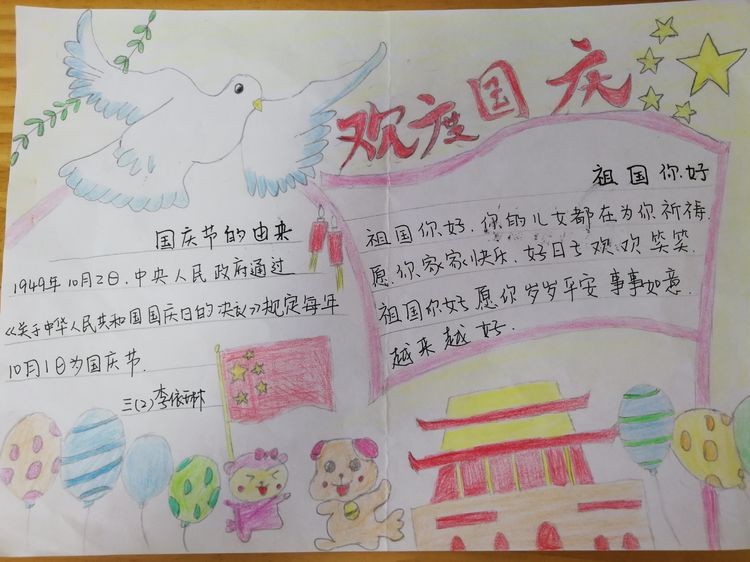 欢度国庆
国庆节的由来
1949年10月2日.中央人民政府通过
《关于中华人民共和国国庆日的决议》规定每年
10月1日为国庆节.
三(2)李依琳
祖国你好
祖国你好.你的儿女都在为你祈祷.
愿你家家快乐.好日子欢欢笑笑.
祖国你好愿你岁岁平安事事如意.
越来越好.